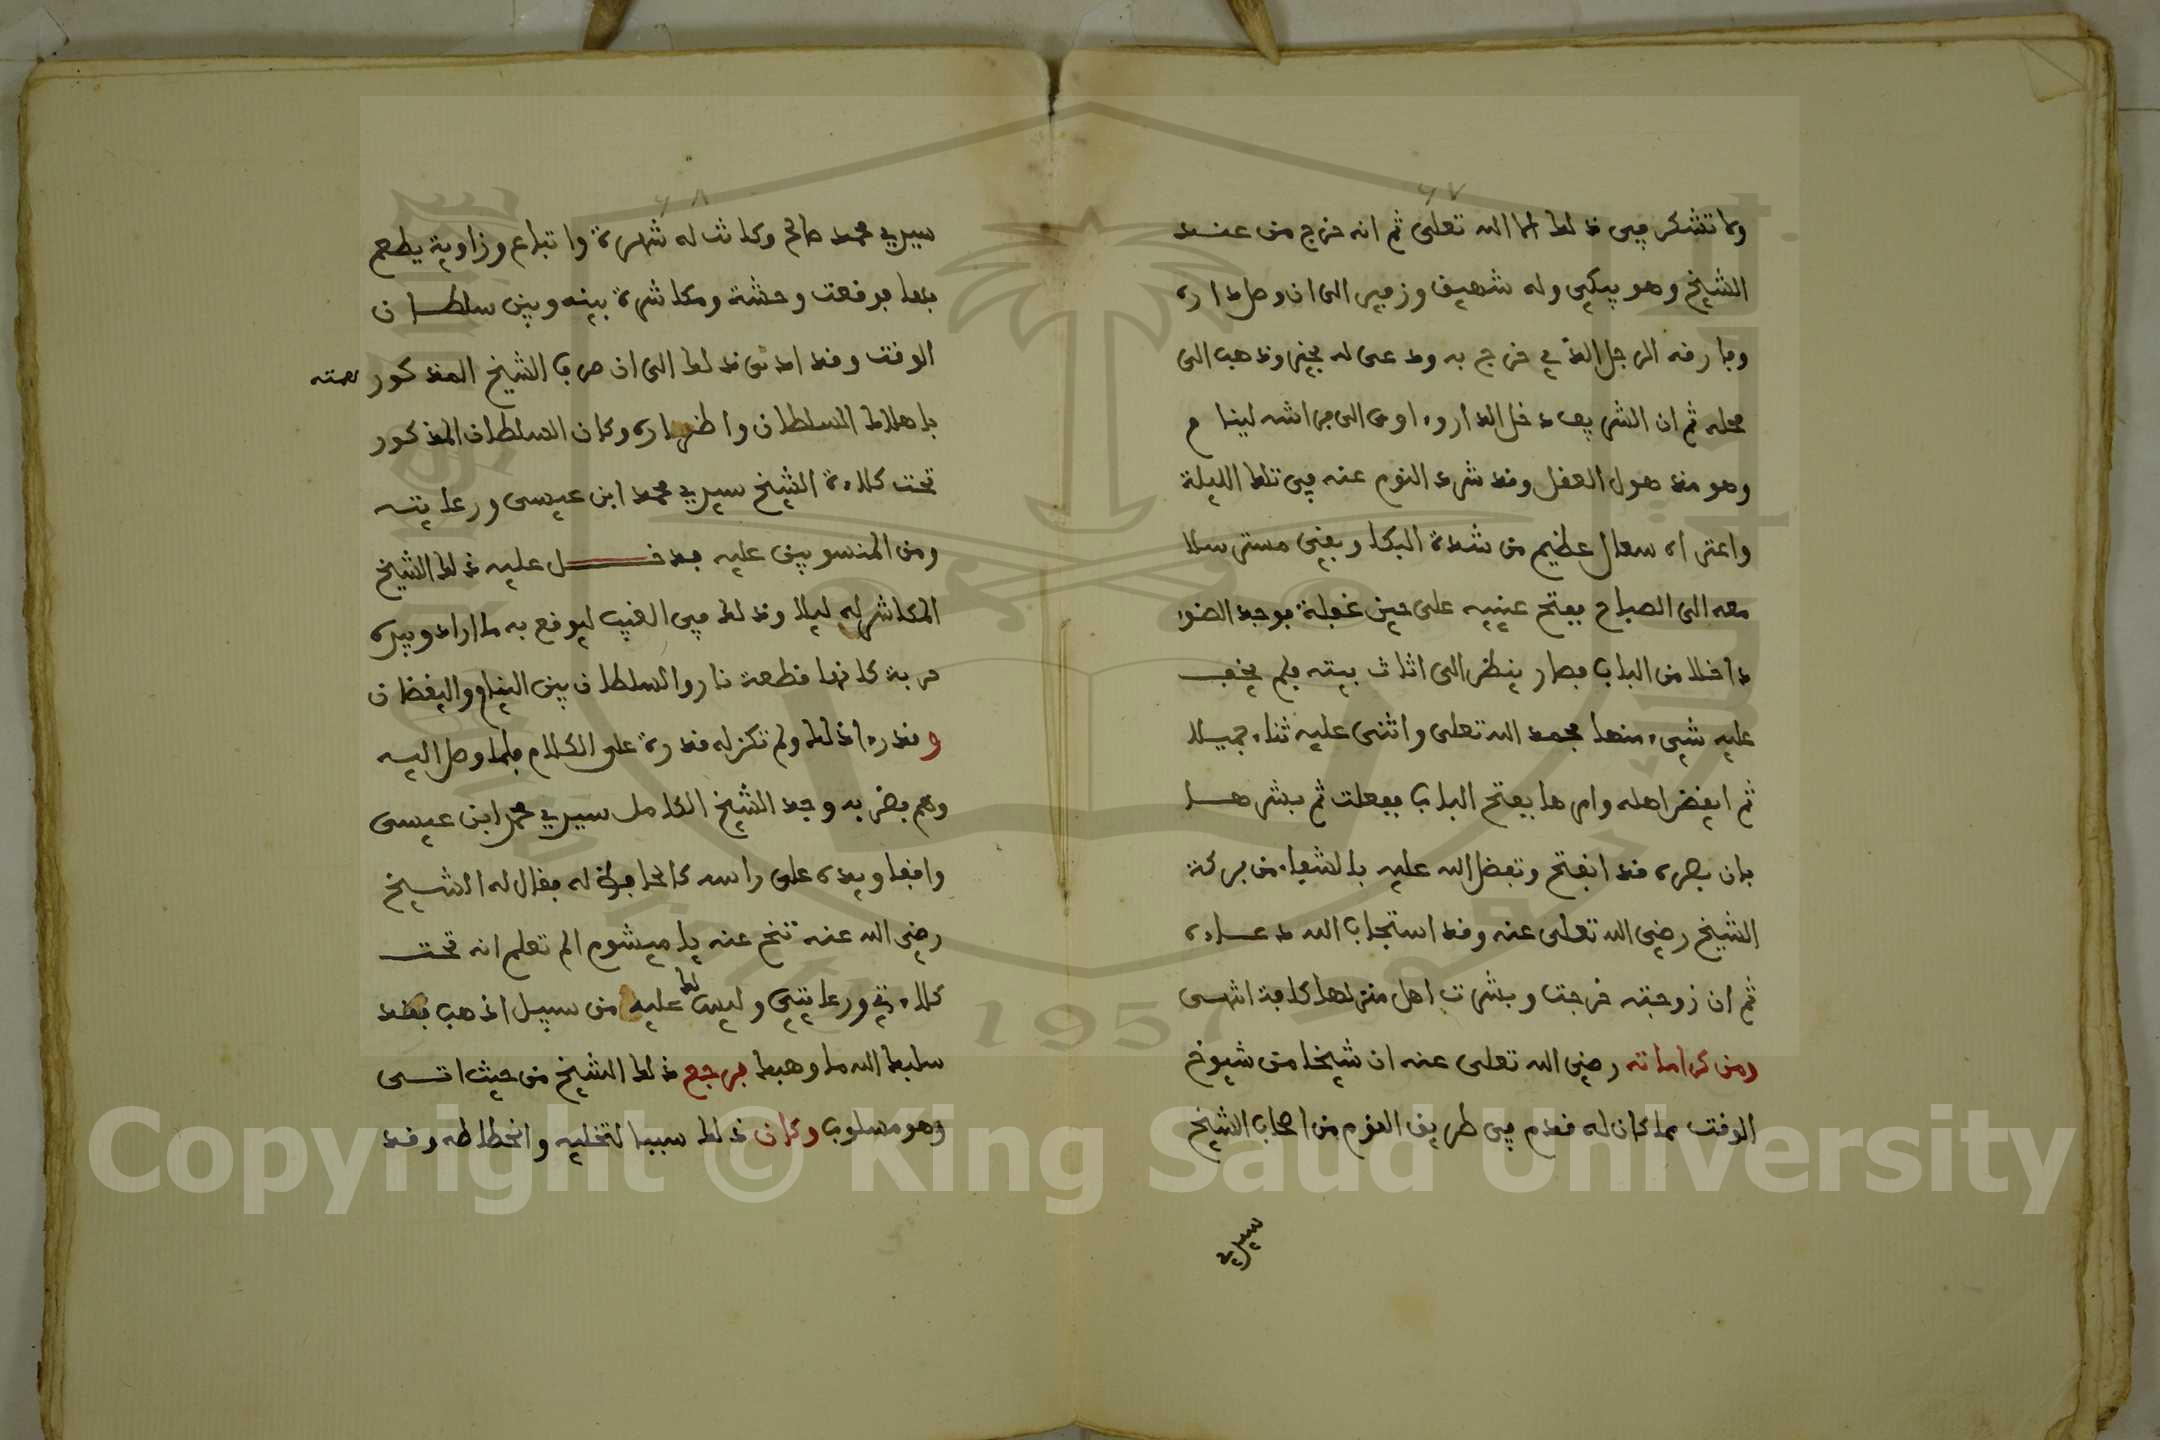 ٤٧
ولا تشكر في ذلك الا الله تعلى ثم انه خرج من عند
الشيخ وهو يبكي وله شهيق وزفير الى ان وصل داره
وفارقه الرجل الذي خرج به ودعى له بخير وذهب الى
محله ثم ان الشريف دخل الدار واوى الى فراشه لينام
وهو مذهول العقل وقد شرد النوم عنه في تلك الليلة
واعتراه سعال عظيم من شدة البكا وبقي مسترسلا
معه الى الصباح ففتح عينيه على حين غفلة فوجد الضوء
داخلا من الباب فصار ينظر الى اثاث بيته فلم يخف
عليه شيء منها فحمد الله تعلى واثنى عليه ثناء جميلا
ثم ايقض اهله وامرها بفتح الباب ففعلت ثم بشرها
بان بصره قد انفتح وتفضل الله عليه بالشفاء من بركة
الشيخ رضي الله تعلى عنه وقد استجاب الله دعاءه
ثم ان زوجته خرجت وبشرت اهل منزلها كافة انتهى
ومن كراماته رضي الله تعلى عنه ان شيخا من شيوخ
الوقت مما كان له قدم في طريق القوم من اصحاب الشيخ
سيدي
٤٨
سيدي محمد صالح وكانت له شهرة واتباع وزاوية يطعم
بها فوقعت وحشة ومكاشرة بينه وبين سلطان
الوقت وقد ادى ذلك الى ان صرف الشيخ المذكور همته
باهلاك السلطان واضراره وكان السلطان المذكور
تحت كلاءة الشيخ سيدي محمد ابن عيسى ورعايته
ومن المنسوبين عليه فدخل عليه ذلك الشيخ
المكاشر له ليلا وذلك في الغيب ليوقع به ما اراد وبيده
حربة كانها قطعة نار والسلطان بين النيام واليقضان
وقد راه اذلك ولم تكن له قدرة على الكلام فلما وصل اليه
وهم بضربه وجد الشيخ الكامل سيدي محمد ابن عيسى
واقفا ويده على راسه كالحافظ له فقال له الشيخ
رضي الله عنه تنح عنه يا ميشوم الم تعلم انه تحت
كلاءتي ورعايتي وليس لك عليه من سبيل اذهب فقد
سلبك الله ما وهبك فرجع ذلك الشيخ من حيث اتى
وهو مسلوب وكان ذلك سببا لتخليه وانحطاطه وقد
Copyright © King Saud University
1957